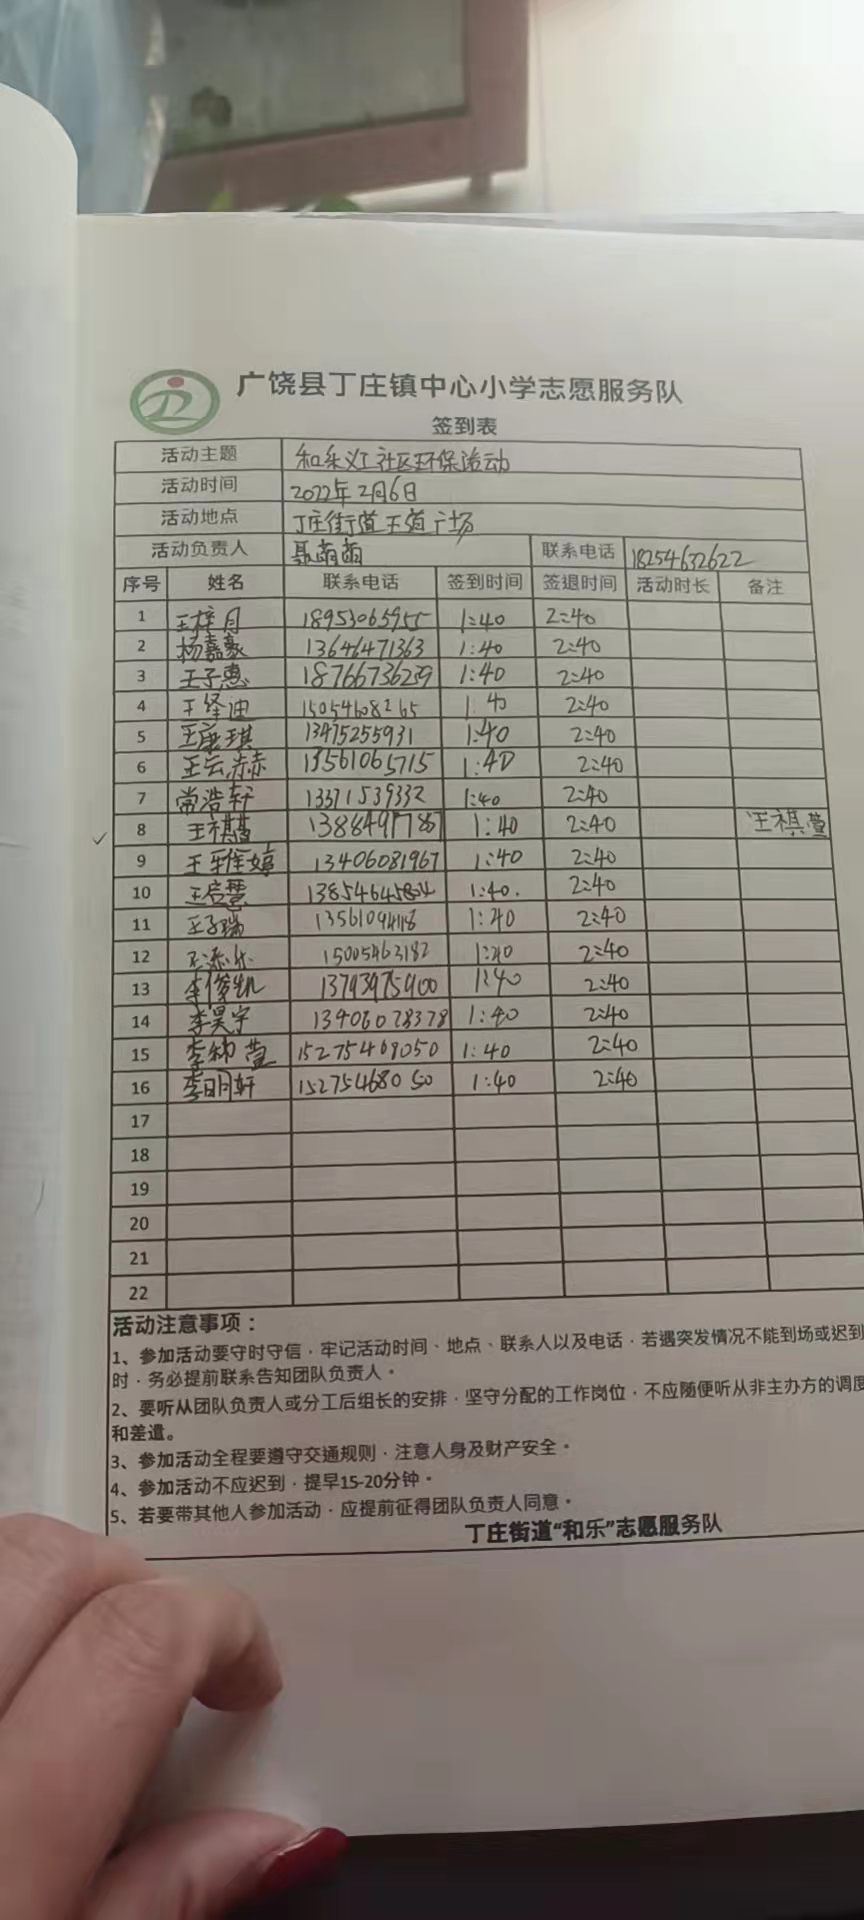 广饶县丁庄镇中心小学志愿服务队
签到表
活动主题 和乐义工社区环保活动
活动时间 2022年2月6日
活动地点 丁庄街道王道广场
活动负责人 聂萌萌 联系电话 18254632622
序号 姓名 联系电话 签到时间 签退时间 活动时长 备注
1 王梓月 18953065955 1:40 2:40
2 杨嘉豪 13646471363 1:40 2:40
3 王子惠 18766736239 1:40 2:40
4 王怿迪 15054608265 1:40 2:40
5 王康琪 13475255931 1:40 2:40
6 王云赫 13561065715 1:40 2:40
7 常浩轩 13371539332 1:40 2:40
8 王祺萱 1:40 2:40 王祺萱
9 王 婷 13406081967 1:40 2:40
10 王 慧 1:40. 2:40
11 王子瑞 1:40 2:40
12 王添乐 15005463182 1:40 2:40
13 李俊凯 13793975900 1:40 2:40
14 李昊宇 13406078378 1:40 2:40
15 李 萱 15275468050 1:40 2:40
16 李明轩 15275468050 1:40 2:40
17
18
19
20
21
22
活动注意事项：
1、参加活动要守时守信，牢记活动时间、地点、联系人以及电话，若遇突发情况不能到场或迟到
时，务必提前联系告知团队负责人。
2、要听从团队负责人或分工后组长的安排，坚守分配的工作岗位，不应随便听从非主办方的调度
和差遣。
3、参加活动全程要遵守交通规则，注意人身及财产安全。
4、参加活动不应迟到，提早15-20分钟。
5、若要带其他人参加活动，应提前征得团队负责人同意。
丁庄街道“和乐”志愿服务队